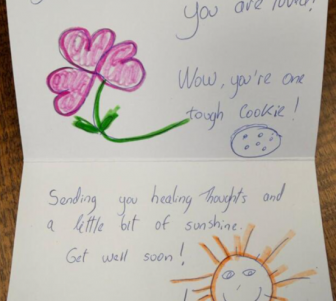 You are
Wow, you're one
tough cookie!
Sending you healing thoughts and
a little bit of sunshine.
Get well soon!